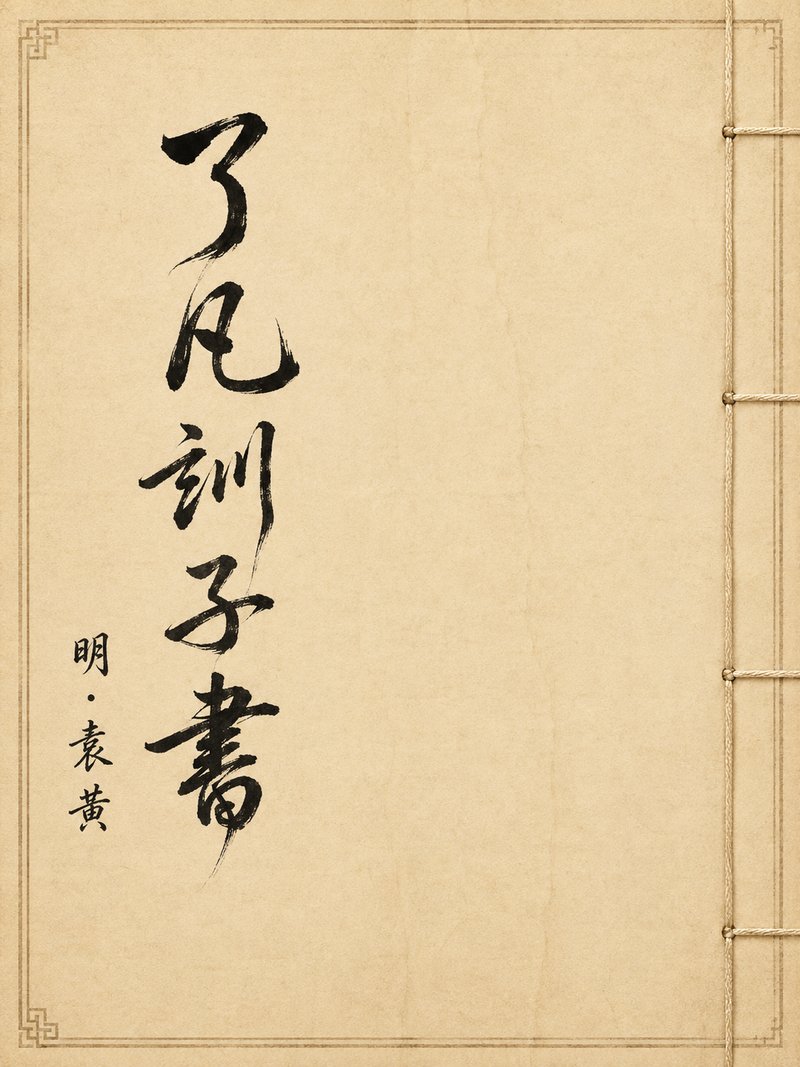 了凡訓子書
明·袁黃